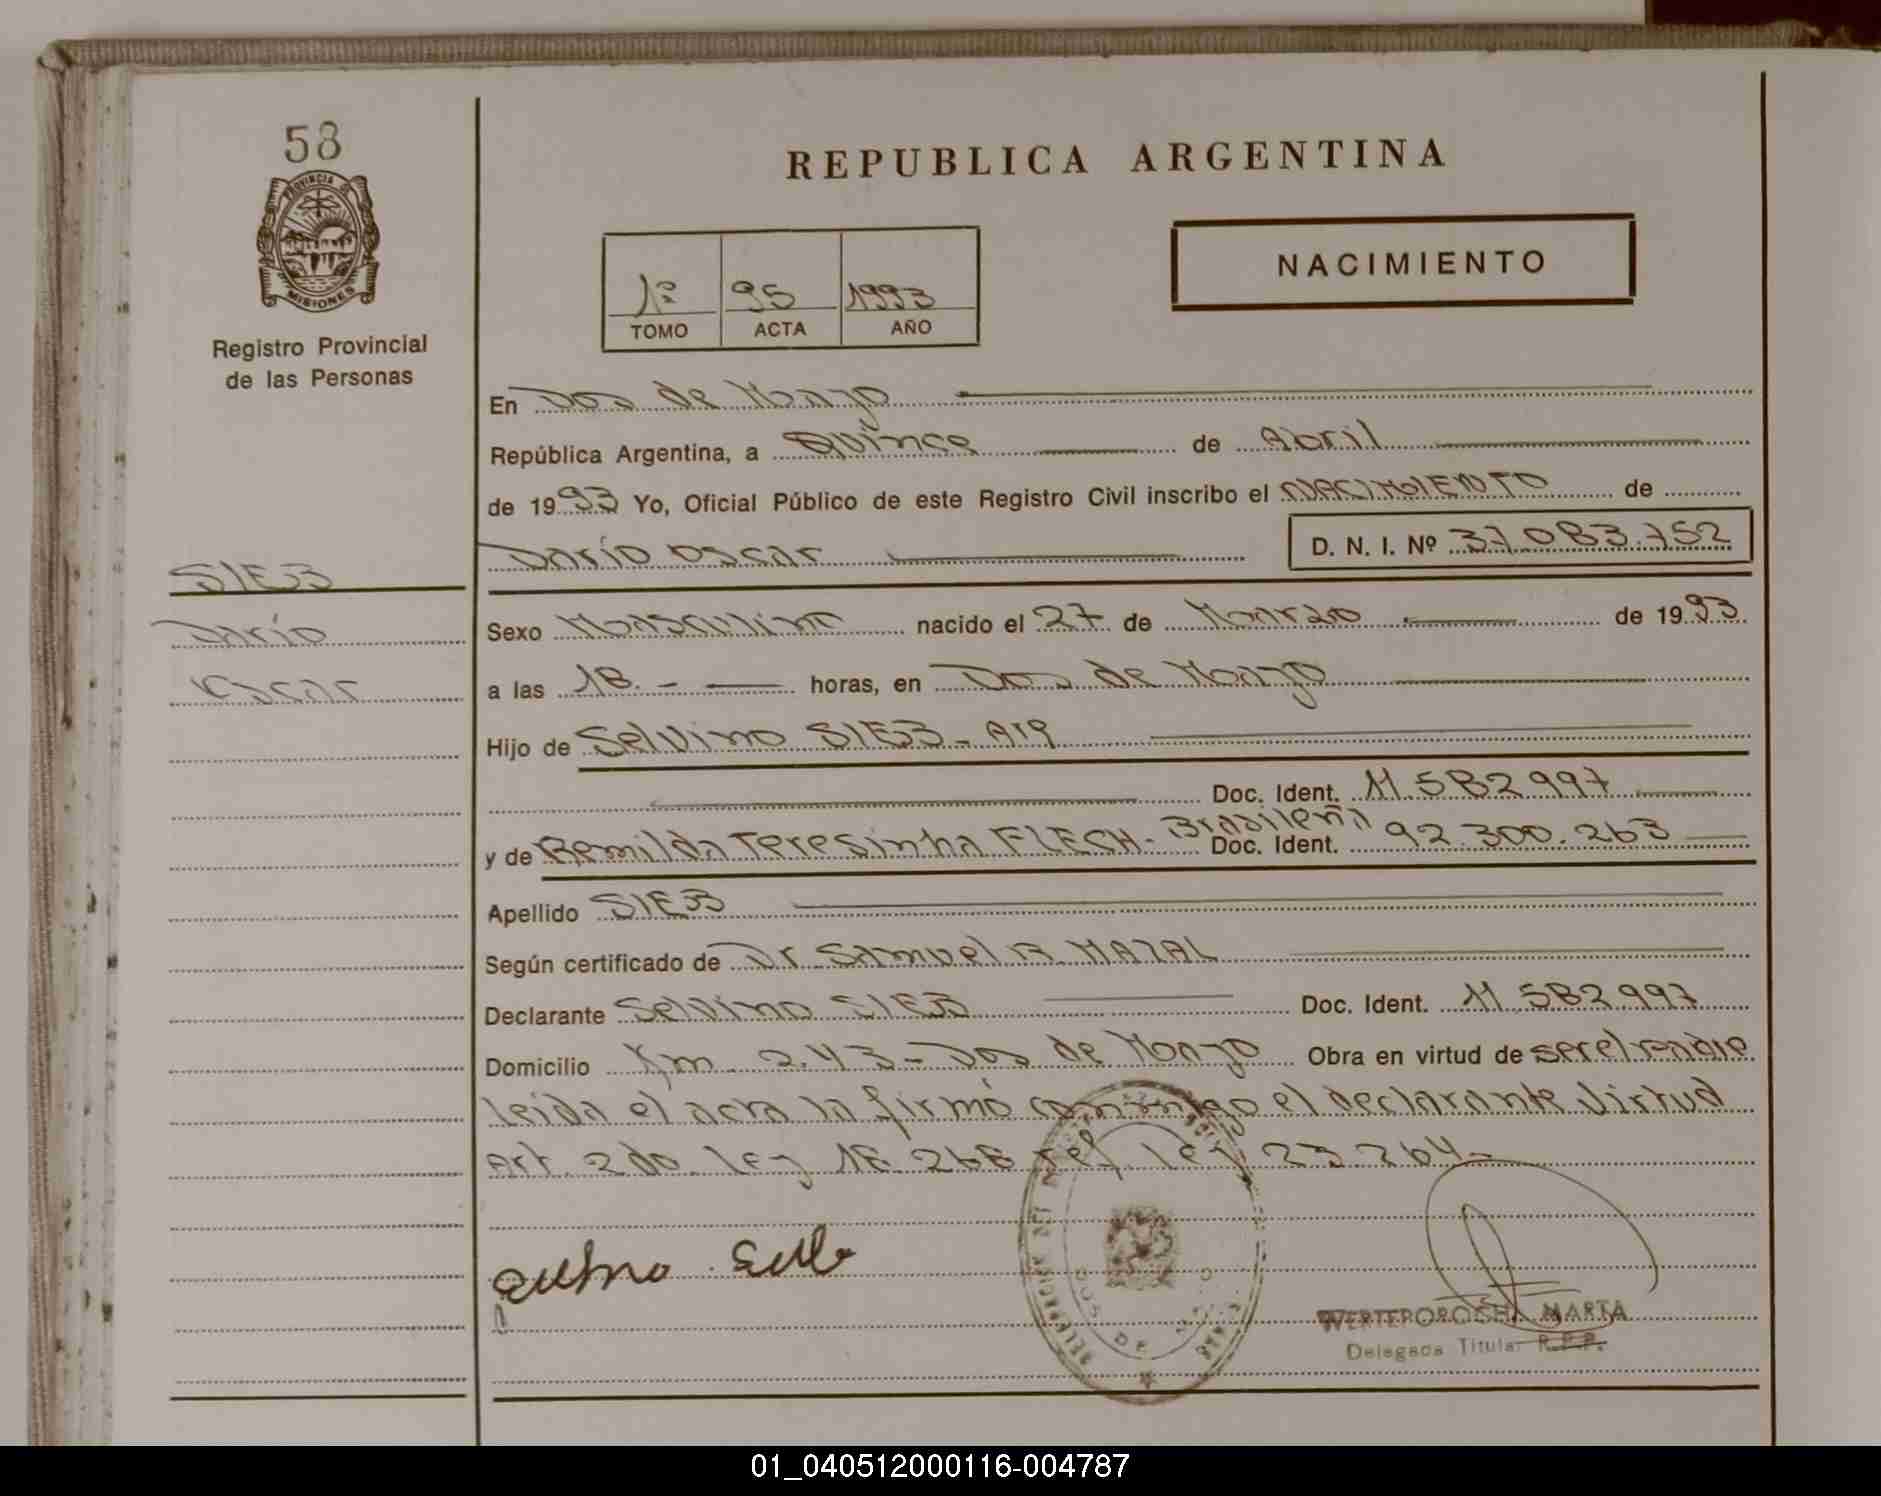 58
PROVINCIA DE
MISIONES
Registro Provincial
de las Personas
REPUBLICA ARGENTINA
NACIMIENTO
1º 95 1993
TOMO ACTA AÑO
En Dos de Mayo
República Argentina, a Quince de Abril
de 1993 Yo, Oficial Público de este Registro Civil inscribo el NACIMIENTO de
Darío Oscar D. N. I. Nº 37.083.752
SIEB
Darío
Oscar
Sexo Masculino nacido el 27 de Marzo de 1993
a las 18.- horas, en Dos de Mayo
Hijo de Selvino SIEB - Arg
Doc. Ident. 11.582997
y de Remilda Teresinha FLECH - Brasileña Doc. Ident. 92.300.263
Apellido SIEB
Según certificado de Dr Samuel A MAZAL
Declarante Selvino SIEB Doc. Ident. 11.582997
Domicilio Km 243 - Dos de Mayo Obra en virtud de ser el padre
leida el acta la firmó conmigo el declarante Virtud
Art. 2do Ley 18.268 ref Ley 23.264-
DOS DE MAYO
WERTEPOROCH MARTA
Delegada Titular R.P.P.
01_040512000116-004787